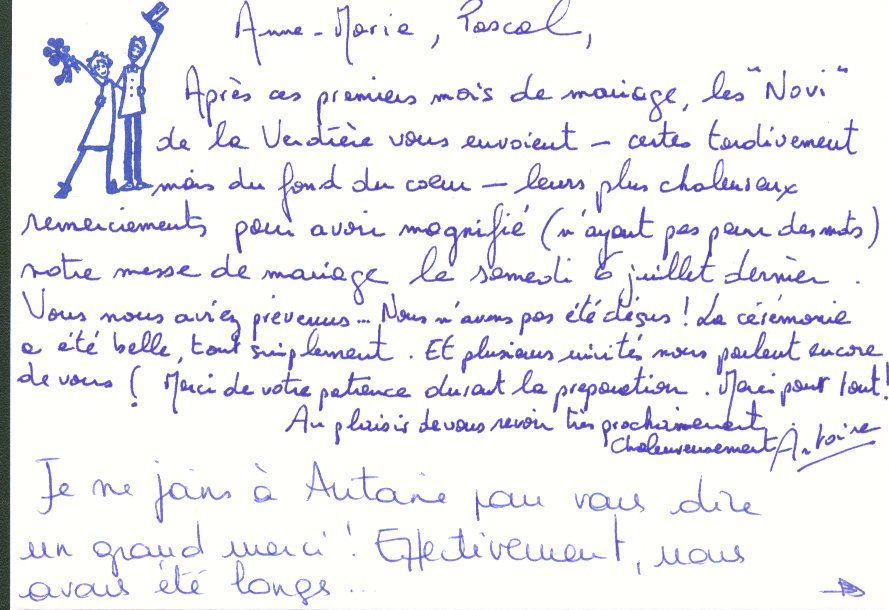 Anne-Marie, Pascal,
Après ces premiers mois de mariage, les "Novi"
de la Verdière vous envoient - certes tardivement
mais du fond du coeur - leurs plus chaleureux
remerciements pour avoir magnifié (n'ayant pas peur des mots)
notre messe de mariage le samedi 6 juillet dernier.
Vous nous aviez prévenus... Nous n'avons pas été déçus ! La cérémonie
a été belle, tout simplement. Et plusieurs invités nous parlent encore
de vous ! Merci de votre patience durant la préparation. Merci pour tout !
Au plaisir de vous revoir très prochainement,
Chaleureusement Antoine
Je me joins à Antoine pour vous dire
un grand merci ! Effectivement, nous
avons été longs...